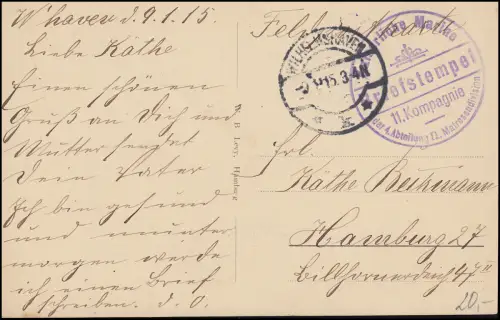 W'haven d. 9.1.15.
Liebe Käthe
Einen schönen
Gruß an Dich und
Mutter sendet
Dein Vater
Ich bin gesund
und munter
morgen werde
ich einen Brief
schreiben. d. O.
Feldpostkarte
WILHELMSHAVEN
15.3-4N
Kaiserliche Marine
Briefstempel
11. Kompagnie
der 4. Abteilung II. Matrosendivision
Frl.
Käthe Beckmann
Hamburg 27
Billhornerdeich 47 II
20,-